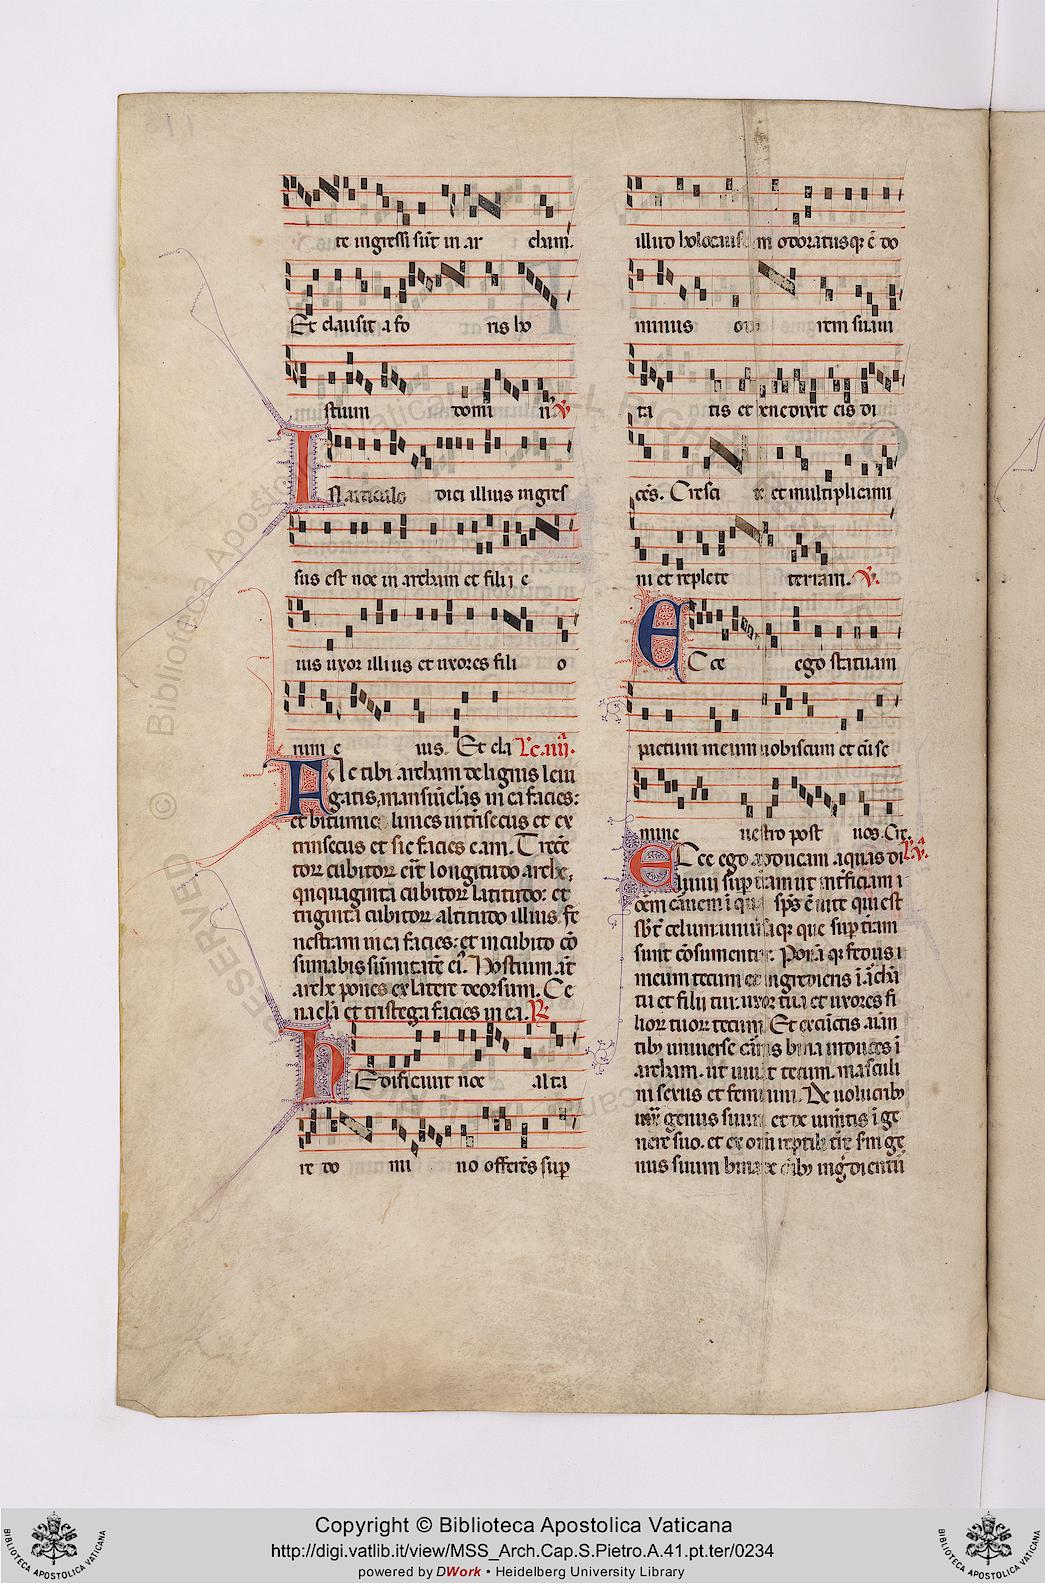 te ingressi sūt in ar cham.
Et clausit a fo ris ho
stium domi nꝰ ℣
IN articulo diei illius ingres
sus est noe in archam et filij e
ius uxor illius et uxores fili o
rum e ius. Et cla Le. iiij.
Fac tibi archam de lignis leui
gatis, mansiūclas in ea facies:
et bitumine linies intrīsecus et ex
trinsecus et sic facies eam. Trecē
toꝝ cubitoꝝ erit longitudo arche,
qnquaginta cubitoꝝ latitudo: et
triginta cubitoꝝ altitudo illius. fe
nestram in ea facies: et in cubito cō
sumabis sūmitatē eiꝰ. Hostium aūt
arche pones ex latere deorsum. Ce
nacla et tristega facies in ea. ℟
Edificauit noe alta
re do mi no offerēs sup
illud holocaustum odoratusqꝫ ē do
minus odorem suaui
ta tis et bnedixit eis di
cēs. Cresci te et multiplicami
ni et replete terram. ℣.
Ecce ego statuam
pactum meum uobiscum et cū se
mine uestro post uos. Cre.
Le. v.
Ecce ego adducam aquas di
luuij sup terram ut intficiam
oēm carnem ī qua spūs uite qui est
subt celum. uniūsaqꝫ que sup terram
sunt cōsumentur. Ponā qꝫ fedus
meum tecum et ingredieris ī archā
tu et filij tui. uxor tua et uxores fi
lioꝝ tuoꝝ tecum. Et ex cūctis aīan
tibꝫ uniuerse carnis bina induces ī
archam. ut uiuāt tecum. masculi
ni sexus et feminini. De uolucribꝫ
iuxta genus suum et de iumētis ī ge
nere suo. et ex omi reptili terre scdm ge
nus suum bina de oībꝫ ingrēdientū
RESERVED © Biblioteca Apostolica Vaticana ALL RIGHTS
Copyright © Biblioteca Apostolica Vaticana
http://digi.vatlib.it/view/MSS_Arch.Cap.S.Pietro.A.41.pt.ter/0234
powered by DWork • Heidelberg University Library
BIBLIOTECA APOSTOLICA VATICANA
BIBLIOTECA APOSTOLICA VATICANA